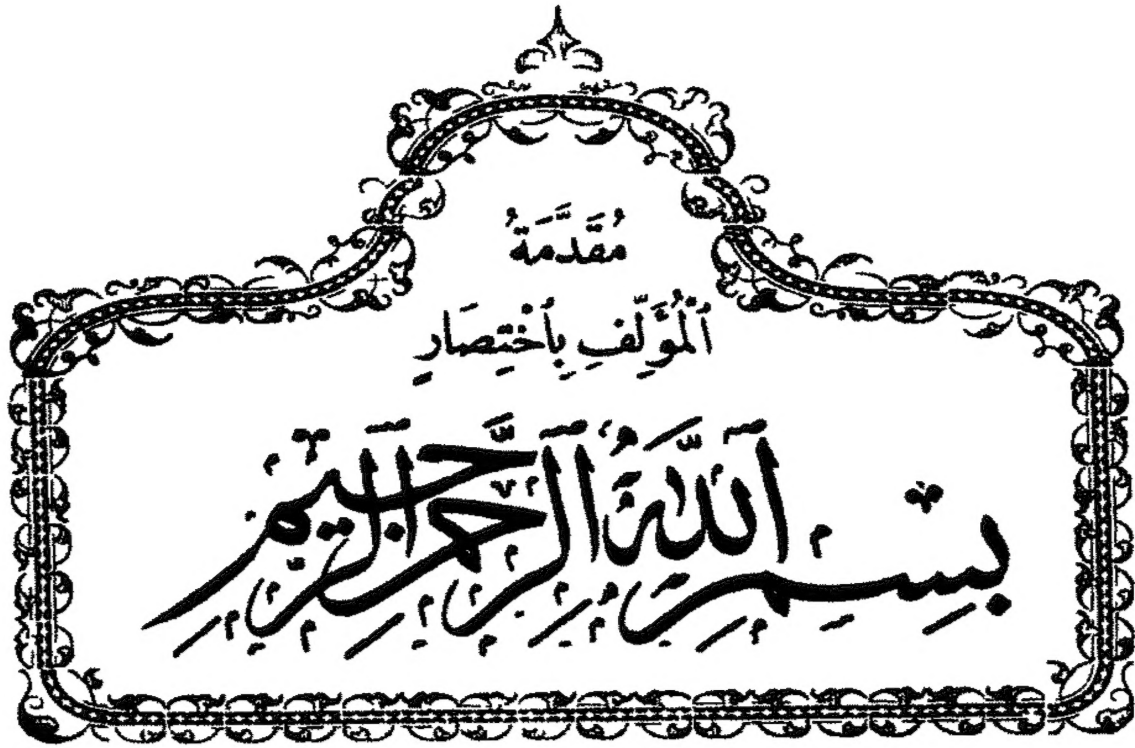 مُقَدَّمَةُ
ٱلْمُؤَلِّفِ بِٱخْتِصَارٍ
بِسْمِ ٱللَّهِ ٱلرَّحْمَٰنِ ٱلرَّحِيمِ